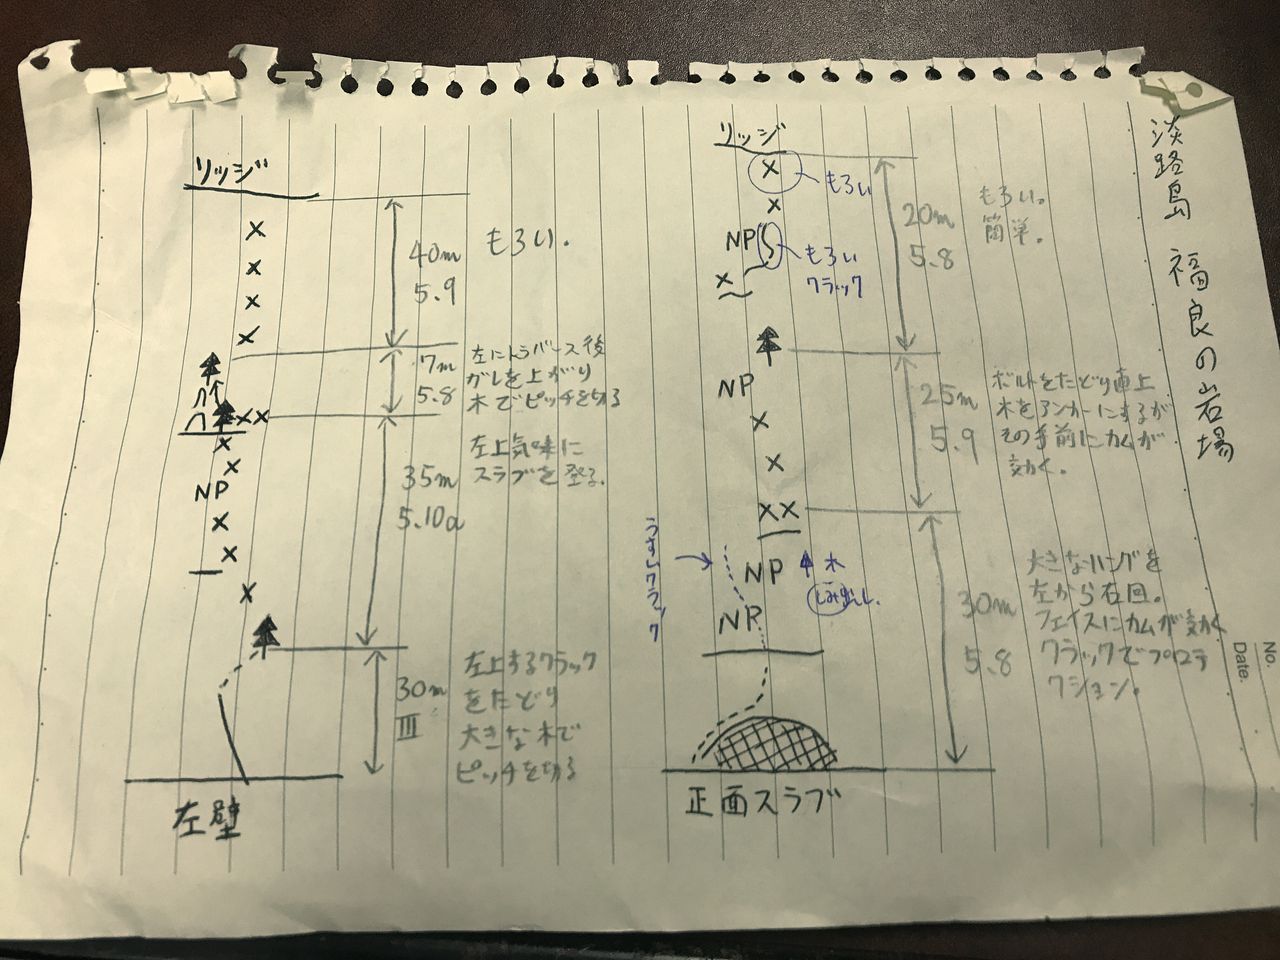 淡路島 福良の岩場
リッジ
40m
5.9
もろい。
7m
5.8
左にトラバース後
ガレを上がり
木でピッチを切る
35m
5.10a
左上気味に
スラブを登る。
NP
30m
III
左上するクラック
をたどり
大きな木で
ピッチを切る
左壁
リッジ
もろい
20m
5.8
もろい。
簡単。
NP
もろい
クラック
NP
25m
5.9
ボルトをたどり直上
木をアンカーにするが
その手前にカムが
効く。
うすいクラック
NP
木
しみ出し。
NP
30m
5.8
大きなハングを
左から右回。
フェイスにカムが効く
クラックでプロテ
クション。
正面スラブ
No.
Date.